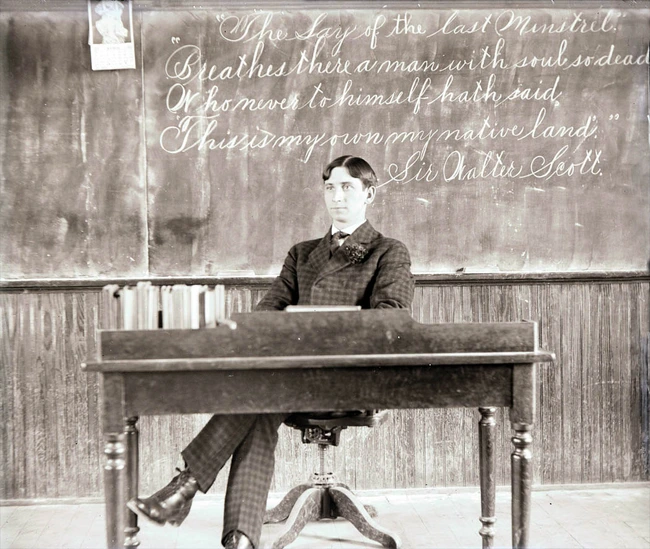 "The Lay of the last Minstrel."
"Breathes there a man with soul so dead
Who never to himself hath said,
"This is my own my native land'."
Sir Walter Scott.